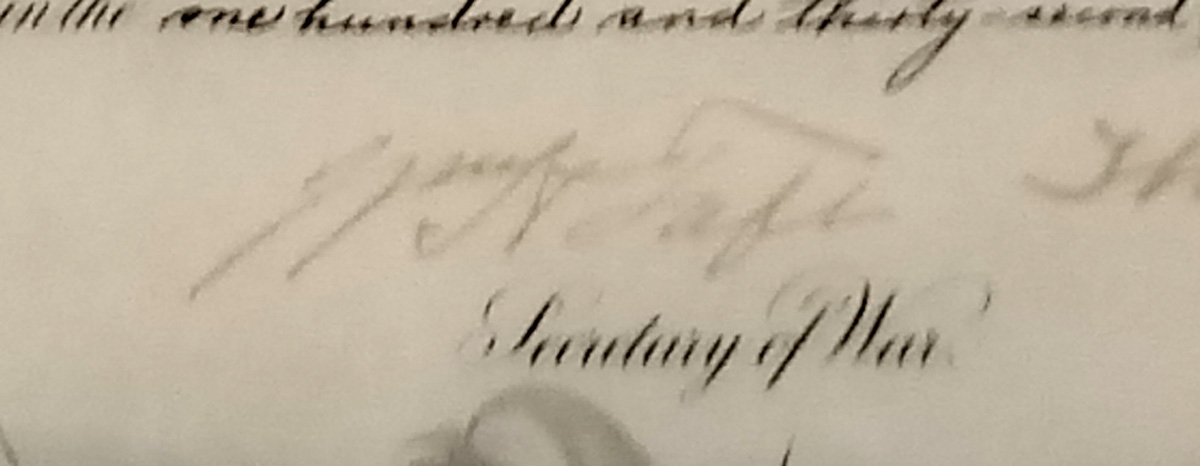 in the one hundred and thirty-second
Wm H Taft Th
Secretary of War